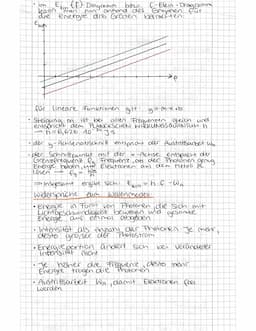 • im E_kin(f)-Diagramm bzw. f-Ekin-Diagramm
kann man nun anhand des Graphen für
die Energie drei Größen
E_kin
f
für lineare Funktionen gilt y=m·x+b
• Steigung m ist bei allen Frequenzen gleich und
entspricht dem Planck'schen Wirkungsquantum h
→ h=6,626·10 Js
• der y-Achsenabschnitt entspricht der Austrittsarbeit W_A
• der Schnittpunkt mit der x-Achse entspricht der
Grenzfrequenz f_G Frequenz, ab der Photonen genug
Energie haben, um Elektronen aus dem Metall zu
lösen →
⇒ insgesamt ergibt sich: E_kin = h·f - W_A
Widersprüche zum Wellenmodell
• Energie in Form von Photonen die sich mit
Lichtgeschwindigkeit bewegen und gesamte
Energie auf einmal abgeben
• Intensität als Anzahl der Photonen je mehr,
desto größer der Photostrom
• Energieportion ändert sich bei veränderter
Intensität nicht
• Je höher die Frequenz, desto mehr
Energie tragen die Photonen
• Austrittsarbeit W_A, damit Elektronen frei
werden